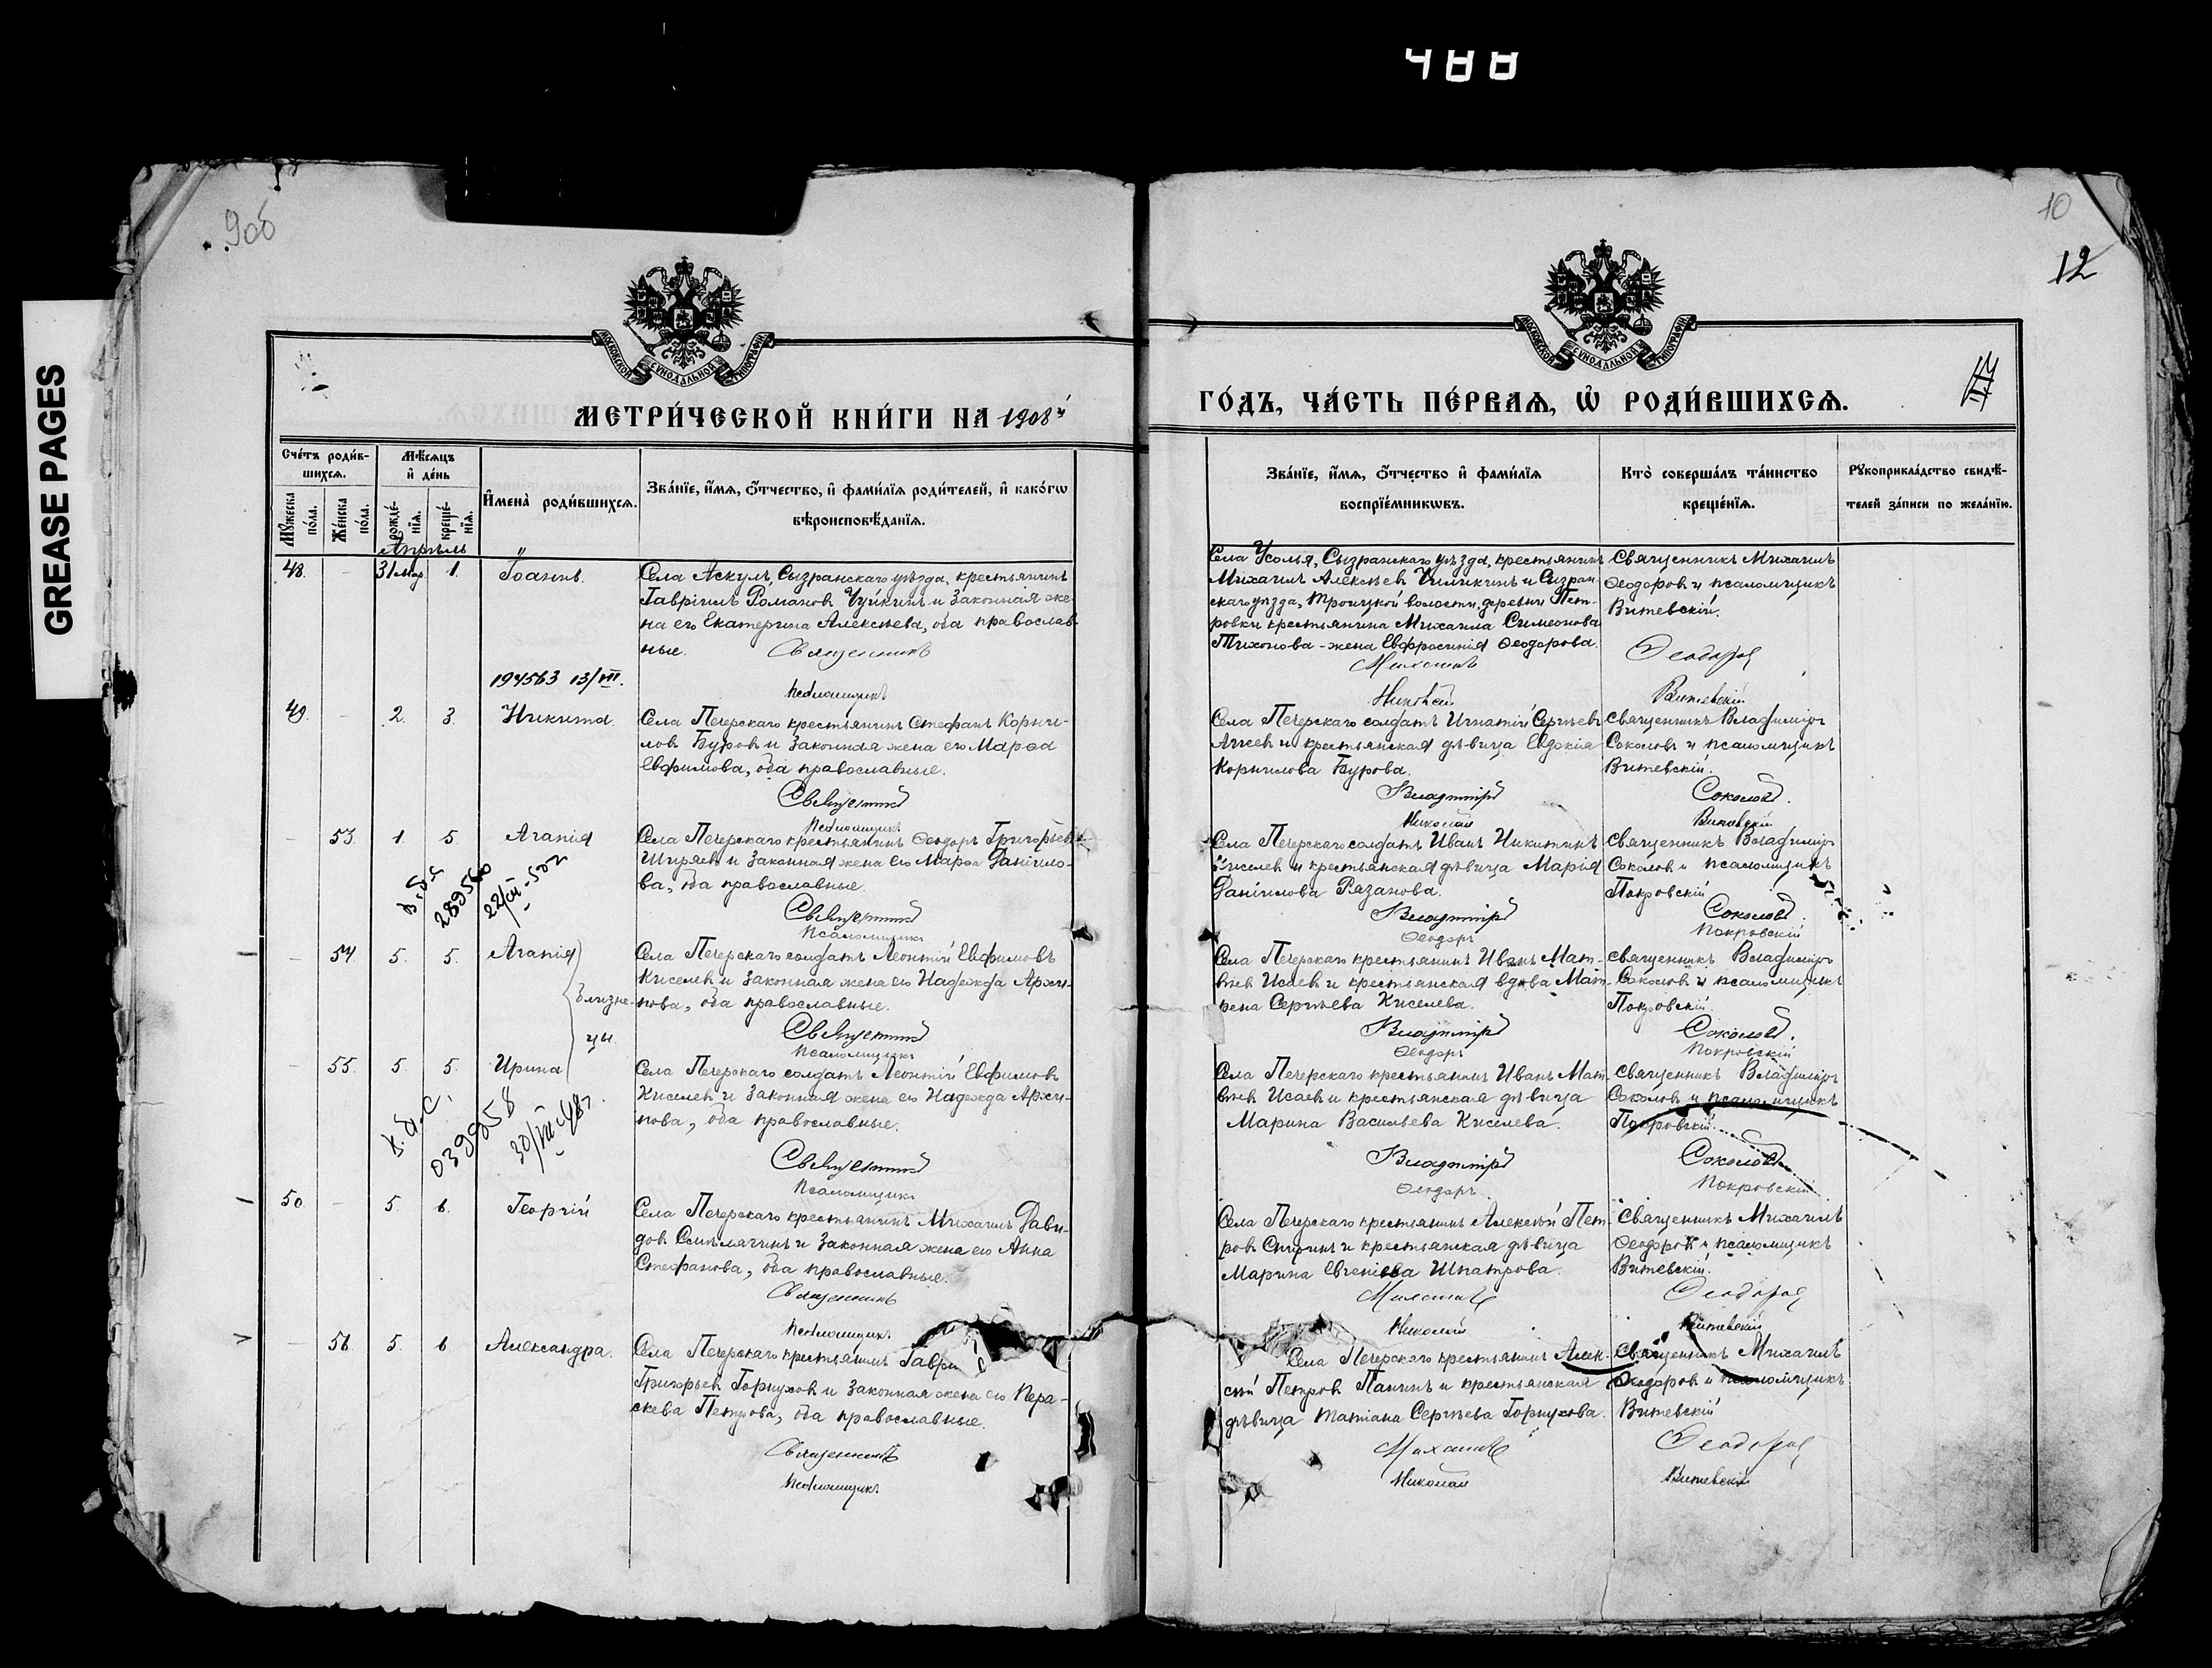 488
GREASE PAGES
9об
10
12
МОСКОВСКОЙ СУНОДАЛЬНОЙ ТИПОГРАФІИ
МОСКОВСКОЙ СУНОДАЛЬНОЙ ТИПОГРАФІИ
МЕТРИ́ЧЕСКОЙ КНИ́ГИ НА 1908й
ГО́ДЪ, ЧА́СТЬ ПЕ́РВАѦ, Ѡ҆ РОДИ́ВШИХСѦ.
Сче́тъ роди́в-
шихсѧ.
Мꙋ́жеска по́ла.
Же́нска по́ла.
Мѣ́сѧцъ
и҆ де́нь
рожде́-нїѧ.
креще́-нїѧ.
И҆мена̀ роди́вшихсѧ.
Зва́нїе, и҆́мѧ, ѻ҆́тчество, и҆ фамѝлїѧ роди́телей, и҆ како́гѡ
вѣроисповѣ́данїѧ.
Зва́нїе, и҆́мѧ, ѻ҆́тчество и҆ фамѝлїѧ
воспрїе́мникѡвъ.
Кто̀ соверша́лъ та́инство
креще́нїѧ.
Рꙋкоприкла́дство свидѣ́-
телей за́писи по жела́нїю.
Апрѣль
48. - 31 Мар 1. Іоаннъ.
Села Аскулъ, Сызранскаго уѣзда, крестьянинъ
Гавріилъ Романов Чуйкинъ и законная же-
на его Екатерина Алексѣева, оба православ-
ные.
Священникъ
Псаломщикъ
Села Усолья, Сызранскаго уѣзда, крестьянинъ
Михаилъ Алексѣев Чиликинъ и Сызран-
скаго уѣзда, Троицкой волости, деревни Пет-
ровки крестьянина Михаила Симеонова
Тихонова - жена Евфросинія Ѳеодорова.
Михаилъ
Николай
Священникъ Михаилъ
Ѳеодоров и псаломщикъ
Витевскій.
Ѳеодоров
Витевскій
194563 13/VII.
49. - 2. 3. Никита.
Села Печерскаго крестьянинъ Стефанъ Корни-
лов Буров и законная жена его Марѳа
Евфимова, оба православные.
Священникъ
Псаломщикъ
Села Печерскаго солдатъ Игнатій Сергѣевъ
Агеев и крестьянская дѣвица Евдокія
Корнилова Бурова.
Владиміръ
Николай
Священникъ Владиміръ
Соколовъ и псаломщикъ
Витевскій.
Соколовъ.
Витевскій
- 53. 1. 5. Агапія
Села Печерскаго крестьянинъ Ѳеодоръ Григорьев
Ширяев и законная жена его Марѳа Даніило-
ва, оба православные.
Священникъ
Псаломщикъ
Села Печерскаго солдатъ Иванъ Никитинъ
Киселев и крестьянская дѣвица Марія
Даніилова Разанова.
Владиміръ
Ѳеодоръ
Священникъ Владиміръ
Соколов и псаломщикъ
Покровскій
Соколовъ.
Покровскій
289560
- 54. 5. 5. Агапія
Близне-
цы.
Села Печерскаго солдатъ Леонтій Евфимовъ
Киселев и законная жена его Надежда Архи-
пова, оба православные.
Священникъ
Псаломщикъ
Села Печерскаго крестьянинъ Иванъ Мат-
вѣев Исаев и крестьянская вдова Мат-
рена Сергѣева Киселева.
Владиміръ
Ѳеодоръ
Священникъ Владиміръ
Соколов и псаломщикъ
Покровскій.
Соколовъ.
Покровскій
- 55. 5. 5. Ирина
Села Печерскаго солдатъ Леонтій Евфимовъ
Киселев и законная жена его Надежда Архи-
пова, оба православные.
Священникъ
Псаломщикъ
Села Печерскаго крестьянинъ Иванъ Мат-
вѣев Исаев и крестьянская дѣвица
Марина Васильева Киселева.
Владиміръ
Ѳеодоръ
Священникъ Владиміръ
Соколов и псаломщикъ
Покровскій.
Соколовъ
Покровскій
30/VII 48г.
50. - 5. 6. Георгій
Села Печерскаго крестьянинъ Михаилъ Дави-
дов Симлячинъ и законная жена его Анна
Стефанова, оба православные.
Священникъ
Псаломщикъ
Села Печерскаго крестьянинъ Алексѣй Пет-
ров Спиринъ и крестьянская дѣвица
Марина Евгеніева Шпатрова.
Михаилъ
Николай
Священникъ Михаилъ
Ѳеодоров и псаломщикъ
Витевскій.
Ѳеодоров
Витевскій
- 56. 5. 6. Александра.
Села Печерскаго крестьянинъ Гаври
Григорьев Горнухов и законная жена его Пера-
скева Петрова, оба православные.
Священникъ
Псаломщикъ
Села Печерскаго крестьянинъ Алек-
сѣй Петров Панинъ и крестьянская
дѣвица Татіана Сергѣева Горнухова.
Михаилъ
Николай
Священникъ Михаилъ
Ѳеодоров и псаломщикъ
Витевскій
Ѳеодоров
Витевскій